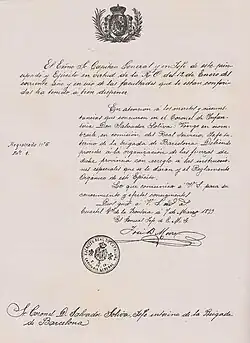 El Exmo Sr Capitan General y en Jefe de este prin-
cipado y Ejército en virtud de la R.O. del 12 de Enero del
corriente año y en uso de las facultades que le estan conferi-
das ha tenido a bien disponer
En atencion a los meritos y circuns-
tancias que concurren en el Coronel de Infan-
teria Don Salvador Soliva Vengo en nom-
brarle en comision del Real servicio Jefe In-
terino de la brigada de Barcelona Debiendo
proceder a la organizacion de las fuerzas de
dicha provincia con arreglo a las instruccio-
nes especiales que se le daran y al Reglamento
Organico de este Ejército.
Lo que comunico a V.S. para su
conocimiento y efectos consiguientes
Dios gde a V.S. m. a.
Cuartel Gral la frontera 7 de Marzo
El General Jefe de E.M.G.
Registrado nº 6
Fol. 1
Sr Coronel D. Salvador Soliva Jefe interino de la Brigada
de Barcelona